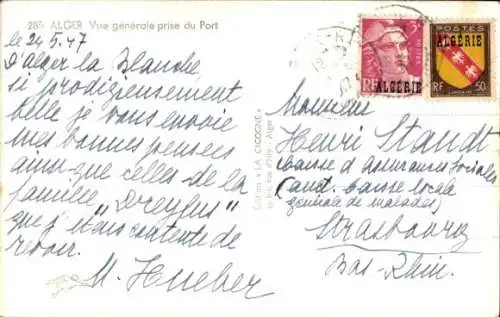 285 ALGER Vue générale prise du Port
le 24.5.47
D'alger la blanche,
si prodigieusement
belle je vous envoie
mes bonnes pensées
ainsi que celles de la
famille "Dreyfus"
que j'étais contente de
revoir.
M. Hueber
Edition "LA CIGOGNE"
Alger
POSTES
ALGÉRIE
RF 50c
5F
RF
ALGÉRIE
Monsieur
Henri Staudt
Caisse d'Assurances Sociales
(anct. Caisse locale
générale de malades)
Strasbourg
Bas-Rhin